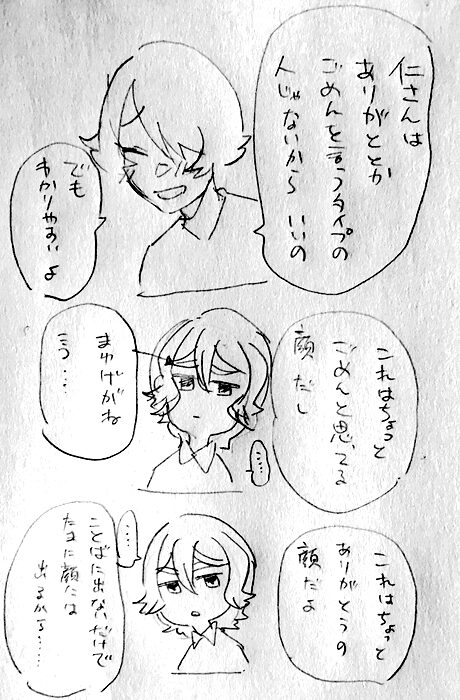 仁さんは
ありがととか
ごめんを言うタイプの
人じゃないから いいの
でも
わかりやすいよ
これはちょっと
ごめんと思ってる
顔だし
まゆげがね
こう…
…
これはちょっと
ありがとうの
顔だよ
…
ことばに出ないだけで
たまに顔には
出るから……